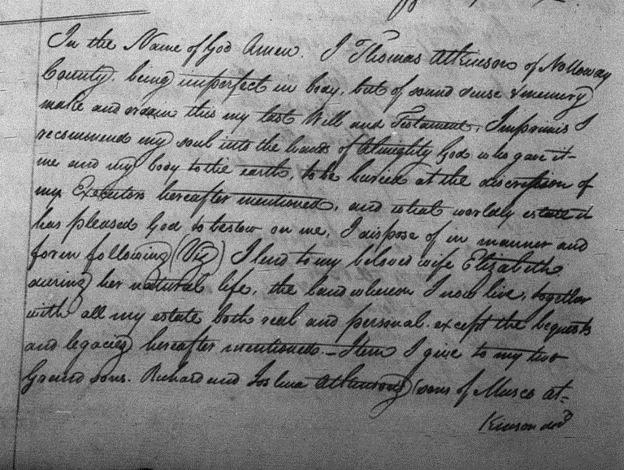 In the Name of God Amen. I Thomas Atkinson of Nolloway
County, being imperfect in body, but of sound sense & memory
make and ordain this my last Will and Testament, Imprimis I
recommend my soul into the hands of Almighty God who gave it
me and my body to the earth, to be buried at the discretion of
my Executors hereafter mentioned, and what worldly estate it
has pleased God to bestow on me, I dispose of in manner and
form following (Viz) I lend to my beloved wife Elizabeth
during her natural life, the land whereon I now live, together
with all my estate both real and personal except the bequests
and legacies hereafter mentioned.— Item I give to my two
Grand sons. Richard and Joshua Atkinsons (sons of Musco At-
kinson decd